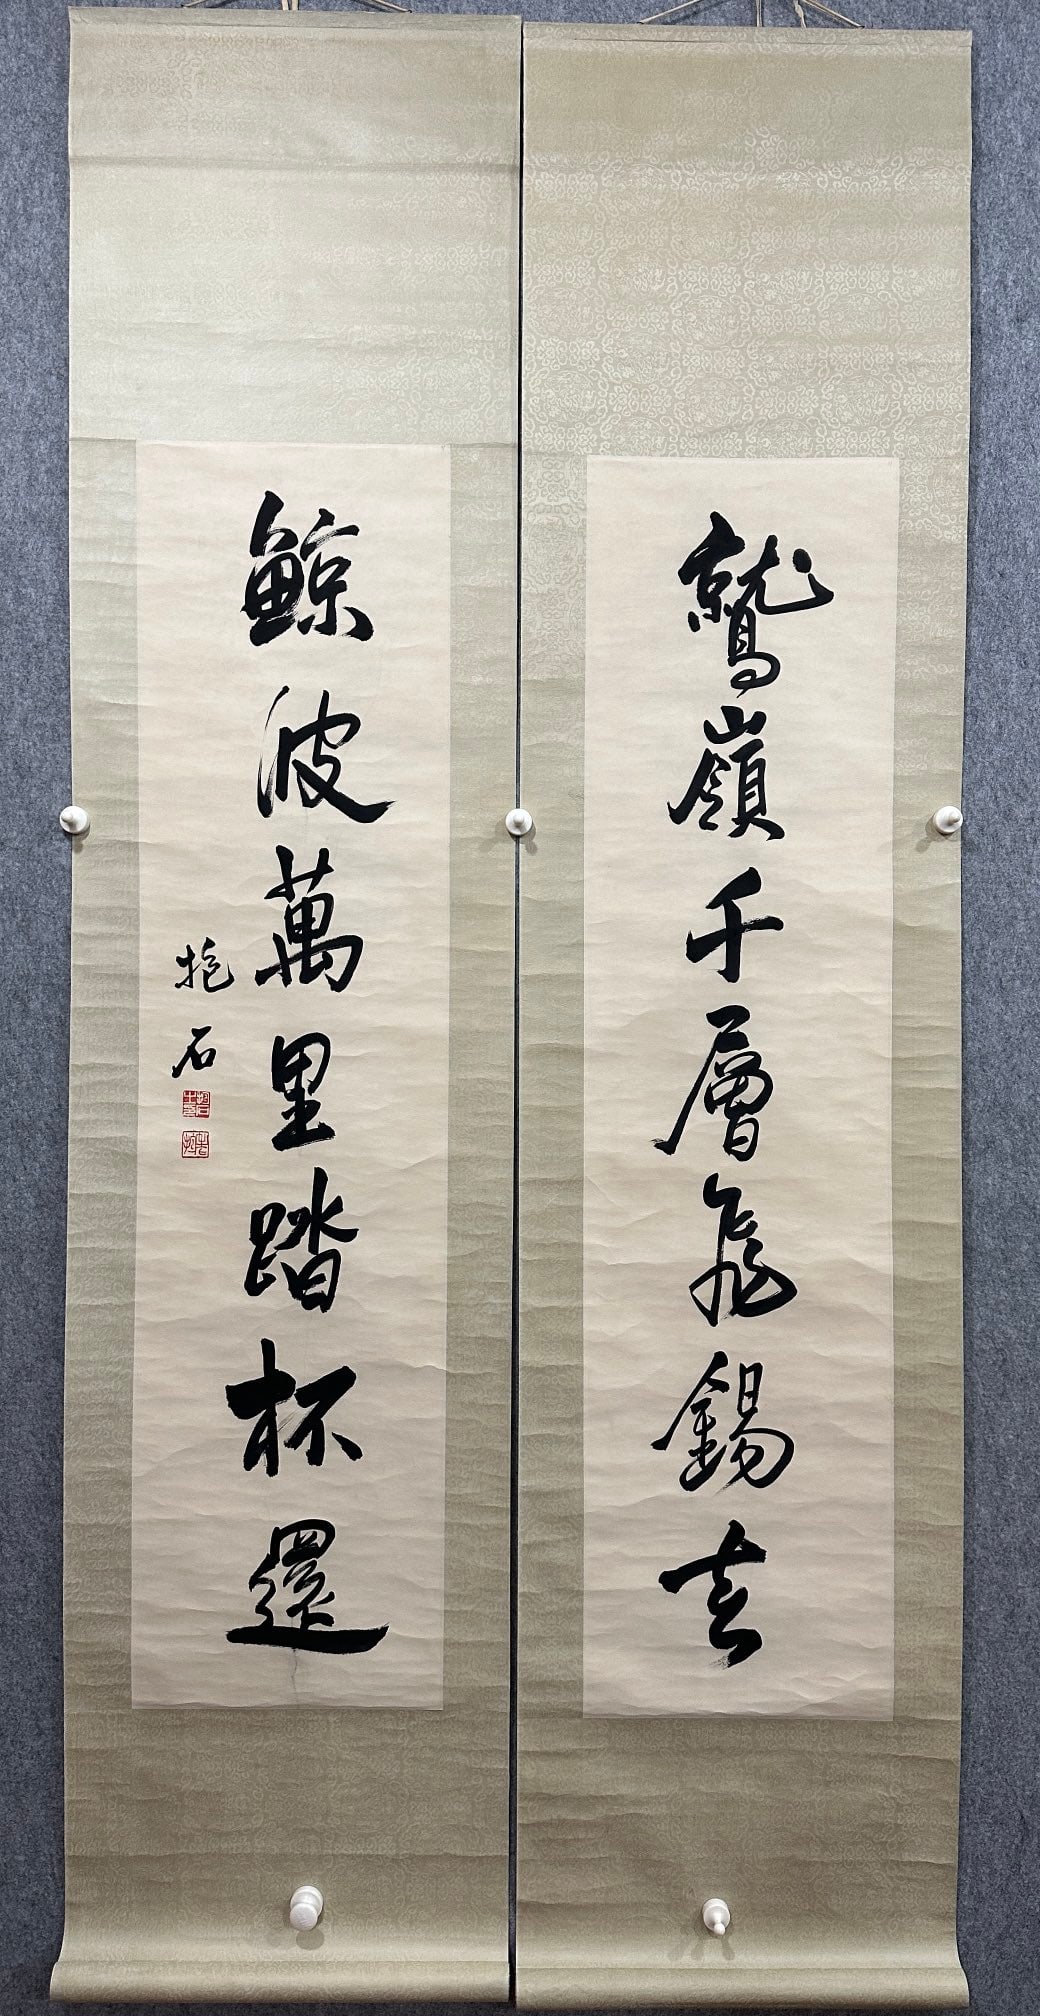 鷲嶺千層飛錫去
鯨波萬里踏杯還
抱石